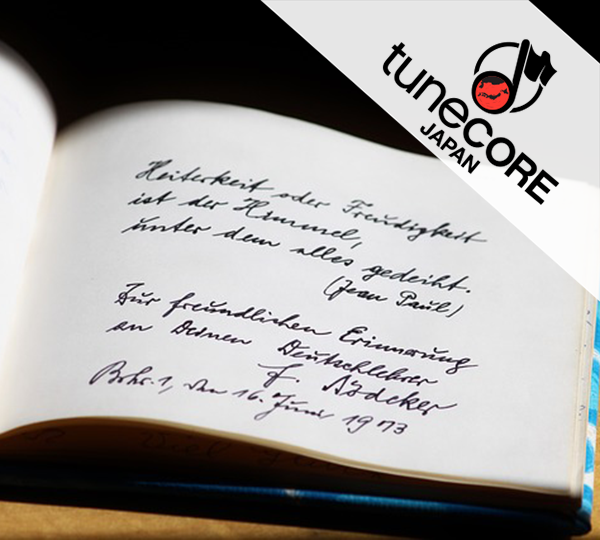 tuneCORE
JAPAN
Heiterkeit oder Freudigkeit
ist der Himmel,
unter dem alles gedeiht.
(Jean Paul)
Zur freundlichen Erinnerung
an Deinen Deutschlehrer
F.
den 16. Juni 1973